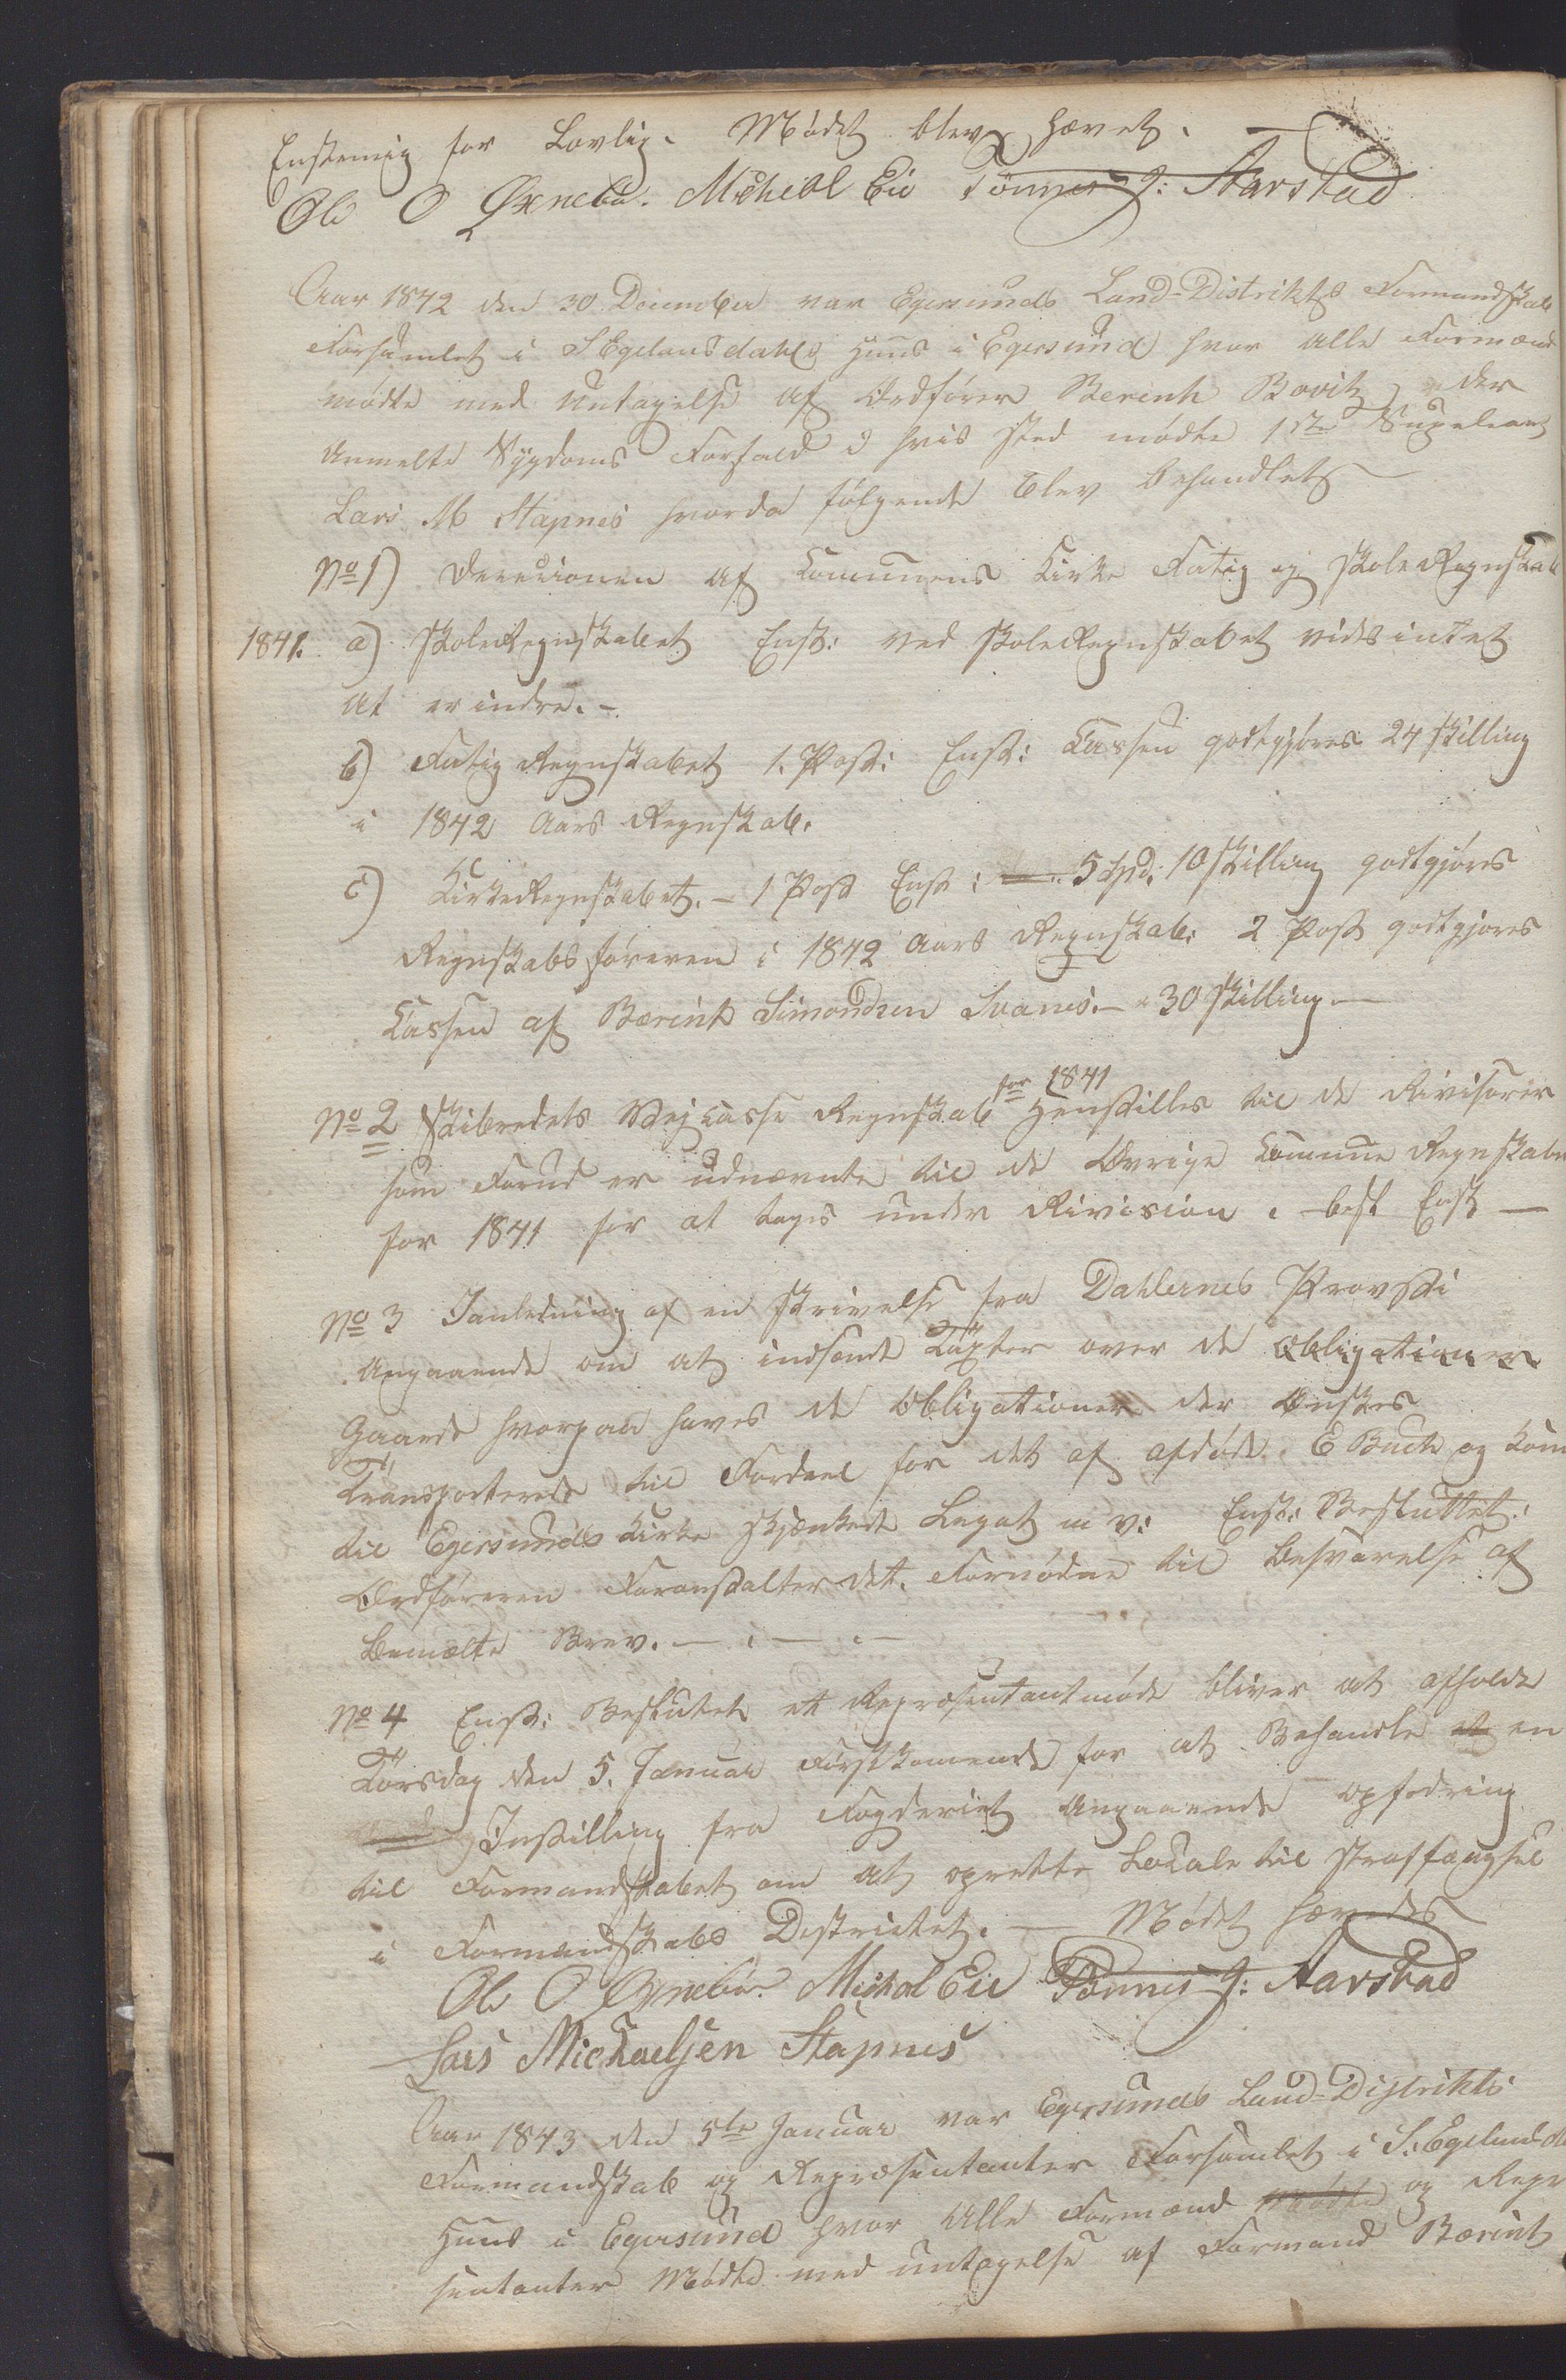 Enstemig for Lovlig. Mødet blev hævet.
Ole O Øxnebø. Micheal Eie Tönnes J: Aarstad
Aar 1842 den 30 December var Egersunds Land-Distrikts Formandskab
Forsamlet i S Egelandsdahls Huus i Egersund hvor alle Formænd
mødte med Untagelse af Ordfører Berenth Bovitz, der
Anmelte Sygdoms Forfald i hvis sted mødte 1ste Supeleant
Lars M Stapnes hvorda følgende blev behandlet
No 1) Decisionen af Communens Kirke Fatig og Skole Regnskab
1841. a) Skole Regnskabet Enst: ved Skole Regnskabet vides intet
at erindre. -
b) Fatig Regnskabet 1. Post: Enst: Cassen godtgjøres 24 skilling
i 1842 Aars Regnskab.
c) Kirke Regnskabet. - 1 Post Enst: 5 Spd. 10 skilling godtgjøres
Regnskabsføreren i 1842 Aars Regnskab: 2 Post godtgjøres
Cassen af Bærint Simondsen Svanes. - 30 skilling. -
No 2 Skibredets Vej Casse Regnskab for 1841 Henstilles til de Rivisorer
som Forud er udnævnte til de Øvrige Commune Regnskaber
for 1841 for at tages under Rivision. - best Enst -
No 3 I anledning af en skrivelse fra Dahlernes Provsti
Angaaende om at indsende Taxter over de Obligationer
Gaarde hvorpaa haves de Obligationer der Ønskes
Transporterede til Fordeel for det af afdøde E Buch og Kone
til Egersunds Kirke skjænkede Legat m v: Enst: Besluttet:
Ordføreren Foranstalter det Fornødne til besvarelse af
bemelte Brev. - . - . -
No 4 Enst: Beslutet et Repræsentantmøde bliver at afholde
Torsdag den 5. Januar Førstkomende for at Behandle et en
Instilling fra Fogderiet Angaaende opfodring
til Formandskabet om at oprette Lokale til straffængsel
i Formandskabs Districtet. - Mødet hævedes
Ole O Øxnebø. Michal Eie Tönnes J: Aarstad
Lars Michaelsen Stapnes
Aar 1843 den 5te Januar var Egersunds Land-Distrikts
Formandskab og Repræsentanter Forsamlet i S: Egelandsda
Huus i Egersund hvor Alle Formænd mødte og Repr
sentanter Mødte med untagelse af Formand Bærint